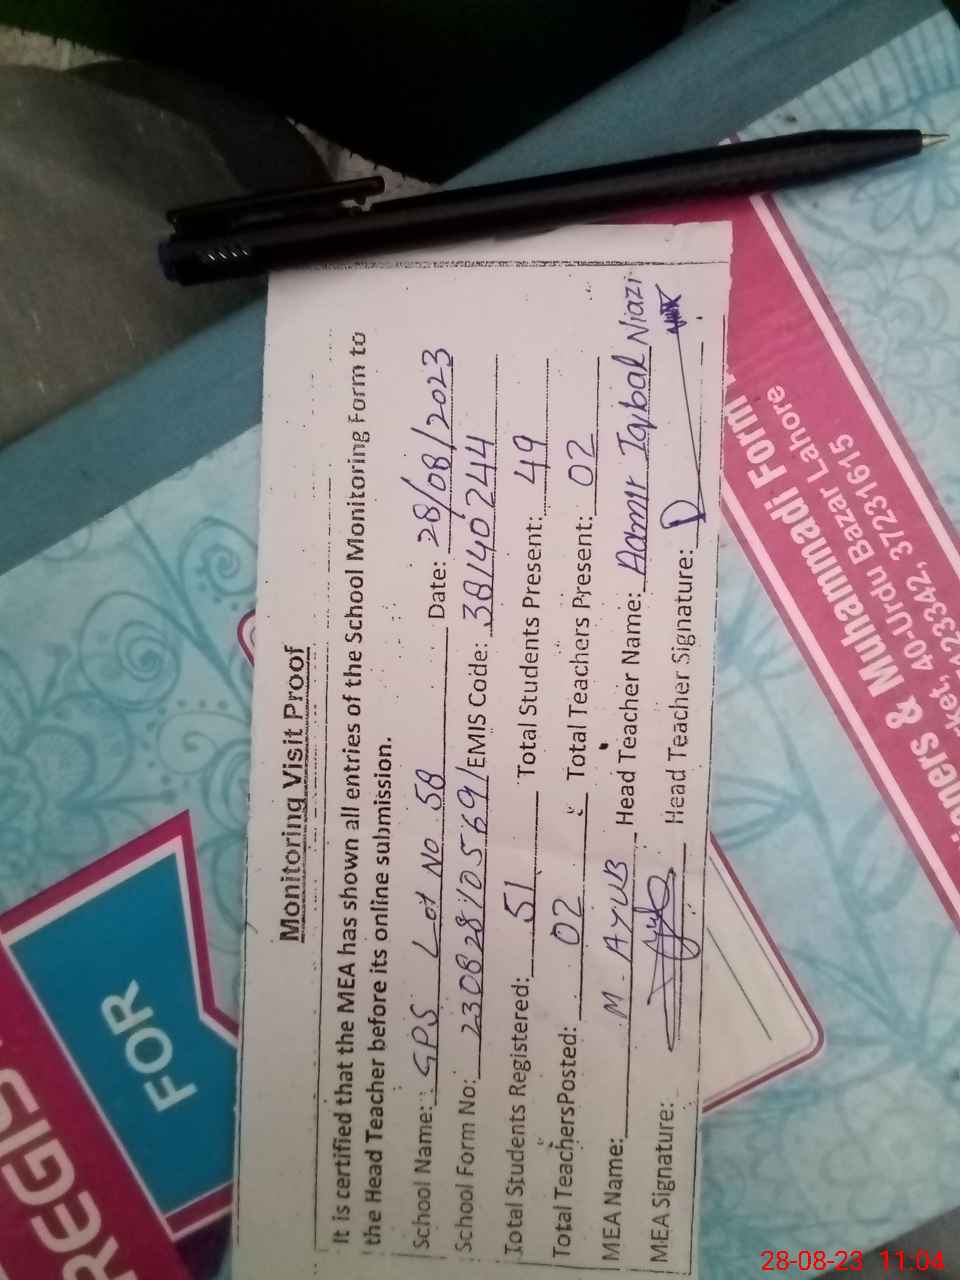 Monitoring Visit Proof
It is certified that the MEA has shown all entries of the School Monitoring Form to
the Head Teacher before its online submission.
School Name: GPS Lot No 58 Date: 28/08/2023
School Form No: 230828105691 EMIS Code: 38140244
Total Students Registered: 51 Total Students Present: 49
Total TeachersPosted: 02 Total Teachers Present: 02
MEA Name: M. AYUB Head Teacher Name: Aamir Iqbal Niazi
MEA Signature: Head Teacher Signature:
FOR
& Muhammadi Form
40-Urdu Bazar Lahore
37231615
28-08-23 11:04